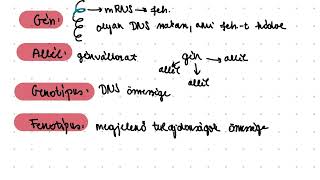 Gén: → mRNS → feh.
olyan DNS szakasz, ami feh.-t kódol
Allél: génváltozat gén → allél
allél
allél
Genotípus: DNS összessége
Fenotípus: megjelenő tulajdonságok összessége